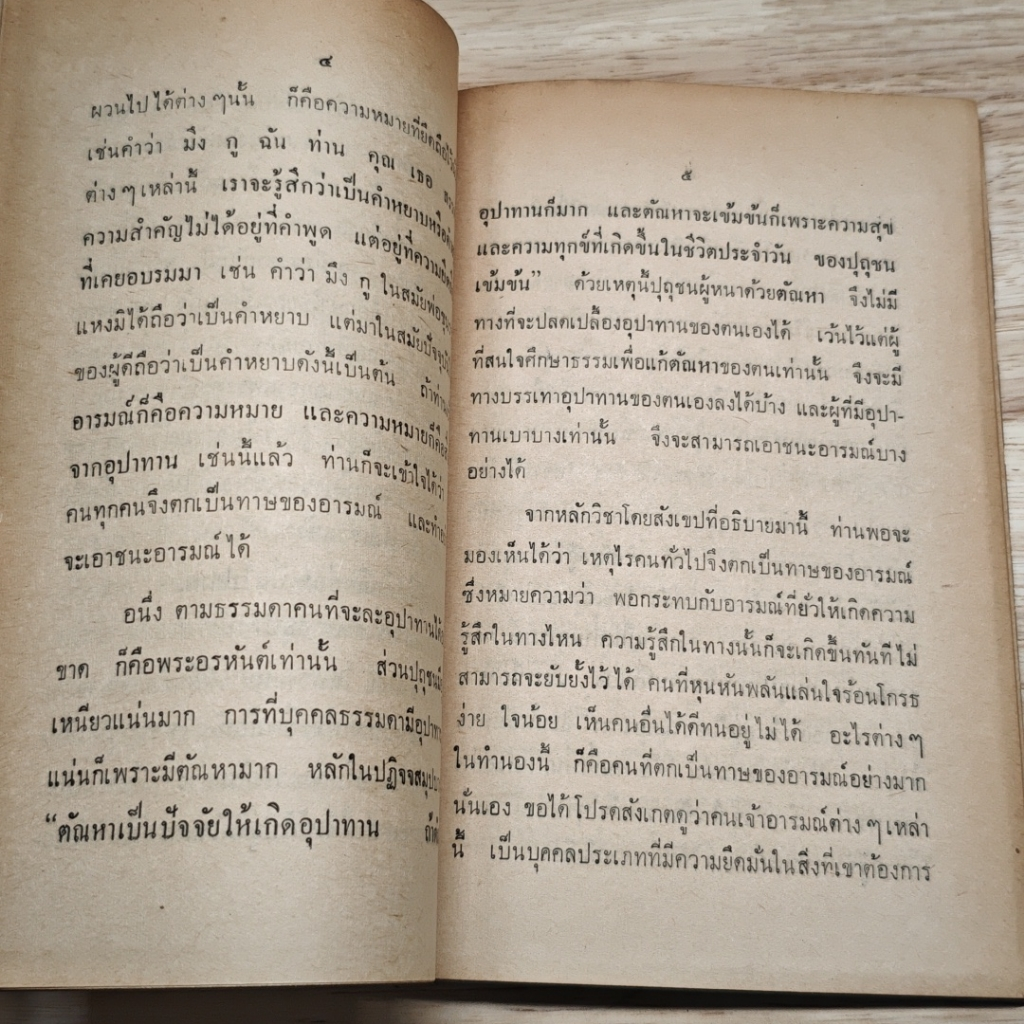 ๔
ผวนไปได้ต่าง ๆนั้น ก็คือความหมายที่ยึดถือ
เช่นคำว่า มึง กู ฉัน ท่าน คุณ เธอ
ต่าง ๆ เหล่านี้ เราจะรู้สึกว่าเป็นคำหยาบหรือ
ความสำคัญไม่ได้อยู่ที่คำพูด แต่อยู่ที่ความ
ที่เคยอบรมมา เช่น คำว่า มึง กู ในสมัยพ่อขุน
แหงมิได้ถือว่าเป็นคำหยาบ แต่มาในสมัยปัจจุบัน
ของผู้ดีถือว่าเป็นคำหยาบดังนี้เป็นต้น ถ้าท่าน
อารมณ์ก็คือความหมาย และความหมายก็คือ
จากอุปาทาน เช่นนี้แล้ว ท่านก็จะเข้าใจได้ว่า
คนทุกคนจึงตกเป็นทาษของอารมณ์
จะเอาชนะอารมณ์ ได้
อนึ่ง ตามธรรมดาคนที่จะละอุปาทานได้
ขาด ก็คือพระอรหันต์เท่านั้น ส่วนปุถุชน
เหนียวแน่นมาก การที่บุคคลธรรมดามีอุปาทาน
แน่นก็เพราะมีตัณหามาก หลักในปฏิจจสมุปบาท
“ตัณหาเป็นปัจจัยให้เกิดอุปาทาน
๕
อุปาทานก็มาก และตัณหาจะเข้มข้นก็เพราะความสุข
และความทุกข์ที่เกิดขึ้นในชีวิตประจำวัน ของปุถุชน
เข้มข้น” ด้วยเหตุนี้ปุถุชนผู้หนาด้วยตัณหา จึงไม่มี
ทางที่จะปลดเปลื้องอุปาทานของตนเองได้ เว้นไว้แต่ผู้
ที่สนใจศึกษาธรรมเพื่อแก้ตัณหาของตนเท่านั้น จึงจะมี
ทางบรรเทาอุปาทานของตนเองลงได้บ้าง และผู้ที่มีอุปา-
ทานเบาบางเท่านั้น จึงจะสามารถเอาชนะอารมณ์บาง
อย่างได้
จากหลักวิชาโดยสังเขปที่อธิบายมานี้ ท่านพอจะ
มองเห็นได้ว่า เหตุไรคนทั่วไปจึงตกเป็นทาษของอารมณ์
ซึ่งหมายความว่า พอกระทบกับอารมณ์ที่ยั่วให้เกิดความ
รู้สึกในทางไหน ความรู้สึกในทางนั้นก็จะเกิดขึ้นทันที ไม่
สามารถจะยับยั้งไว้ ได้ คนที่หุนหันพลันแล่นใจร้อนโกรธ
ง่าย ใจน้อย เห็นคนอื่นได้ดีทนอยู่ ไม่ได้ อะไรต่าง ๆ
ในทำนองนี้ ก็คือคนที่ตกเป็นทาษของอารมณ์อย่างมาก
นั่นเอง ขอได้ โปรดสังเกตดูว่าคนเจ้าอารมณ์ต่าง ๆ เหล่า
นี้ เป็นบุคคลประเภทที่มีความยึดมั่นในสิ่งที่เขาต้องการ